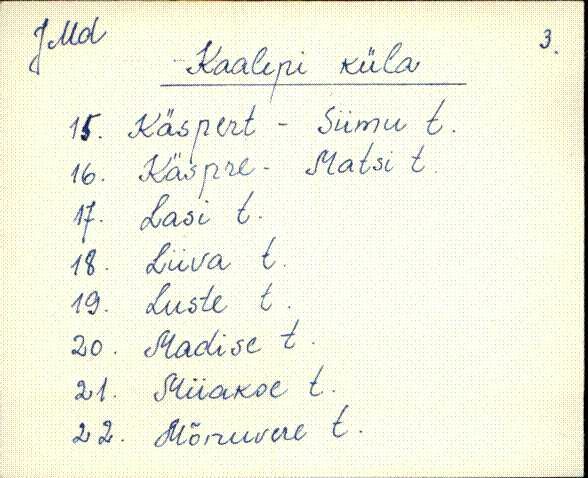 JMd
3.
Kaalepi küla
15. Käspert - Siimu t.
16. Käspre - Matsi t.
17. Lasi t.
18. Liiva t.
19. Luste t.
20. Madise t.
21. Miiakoe t.
22. t.